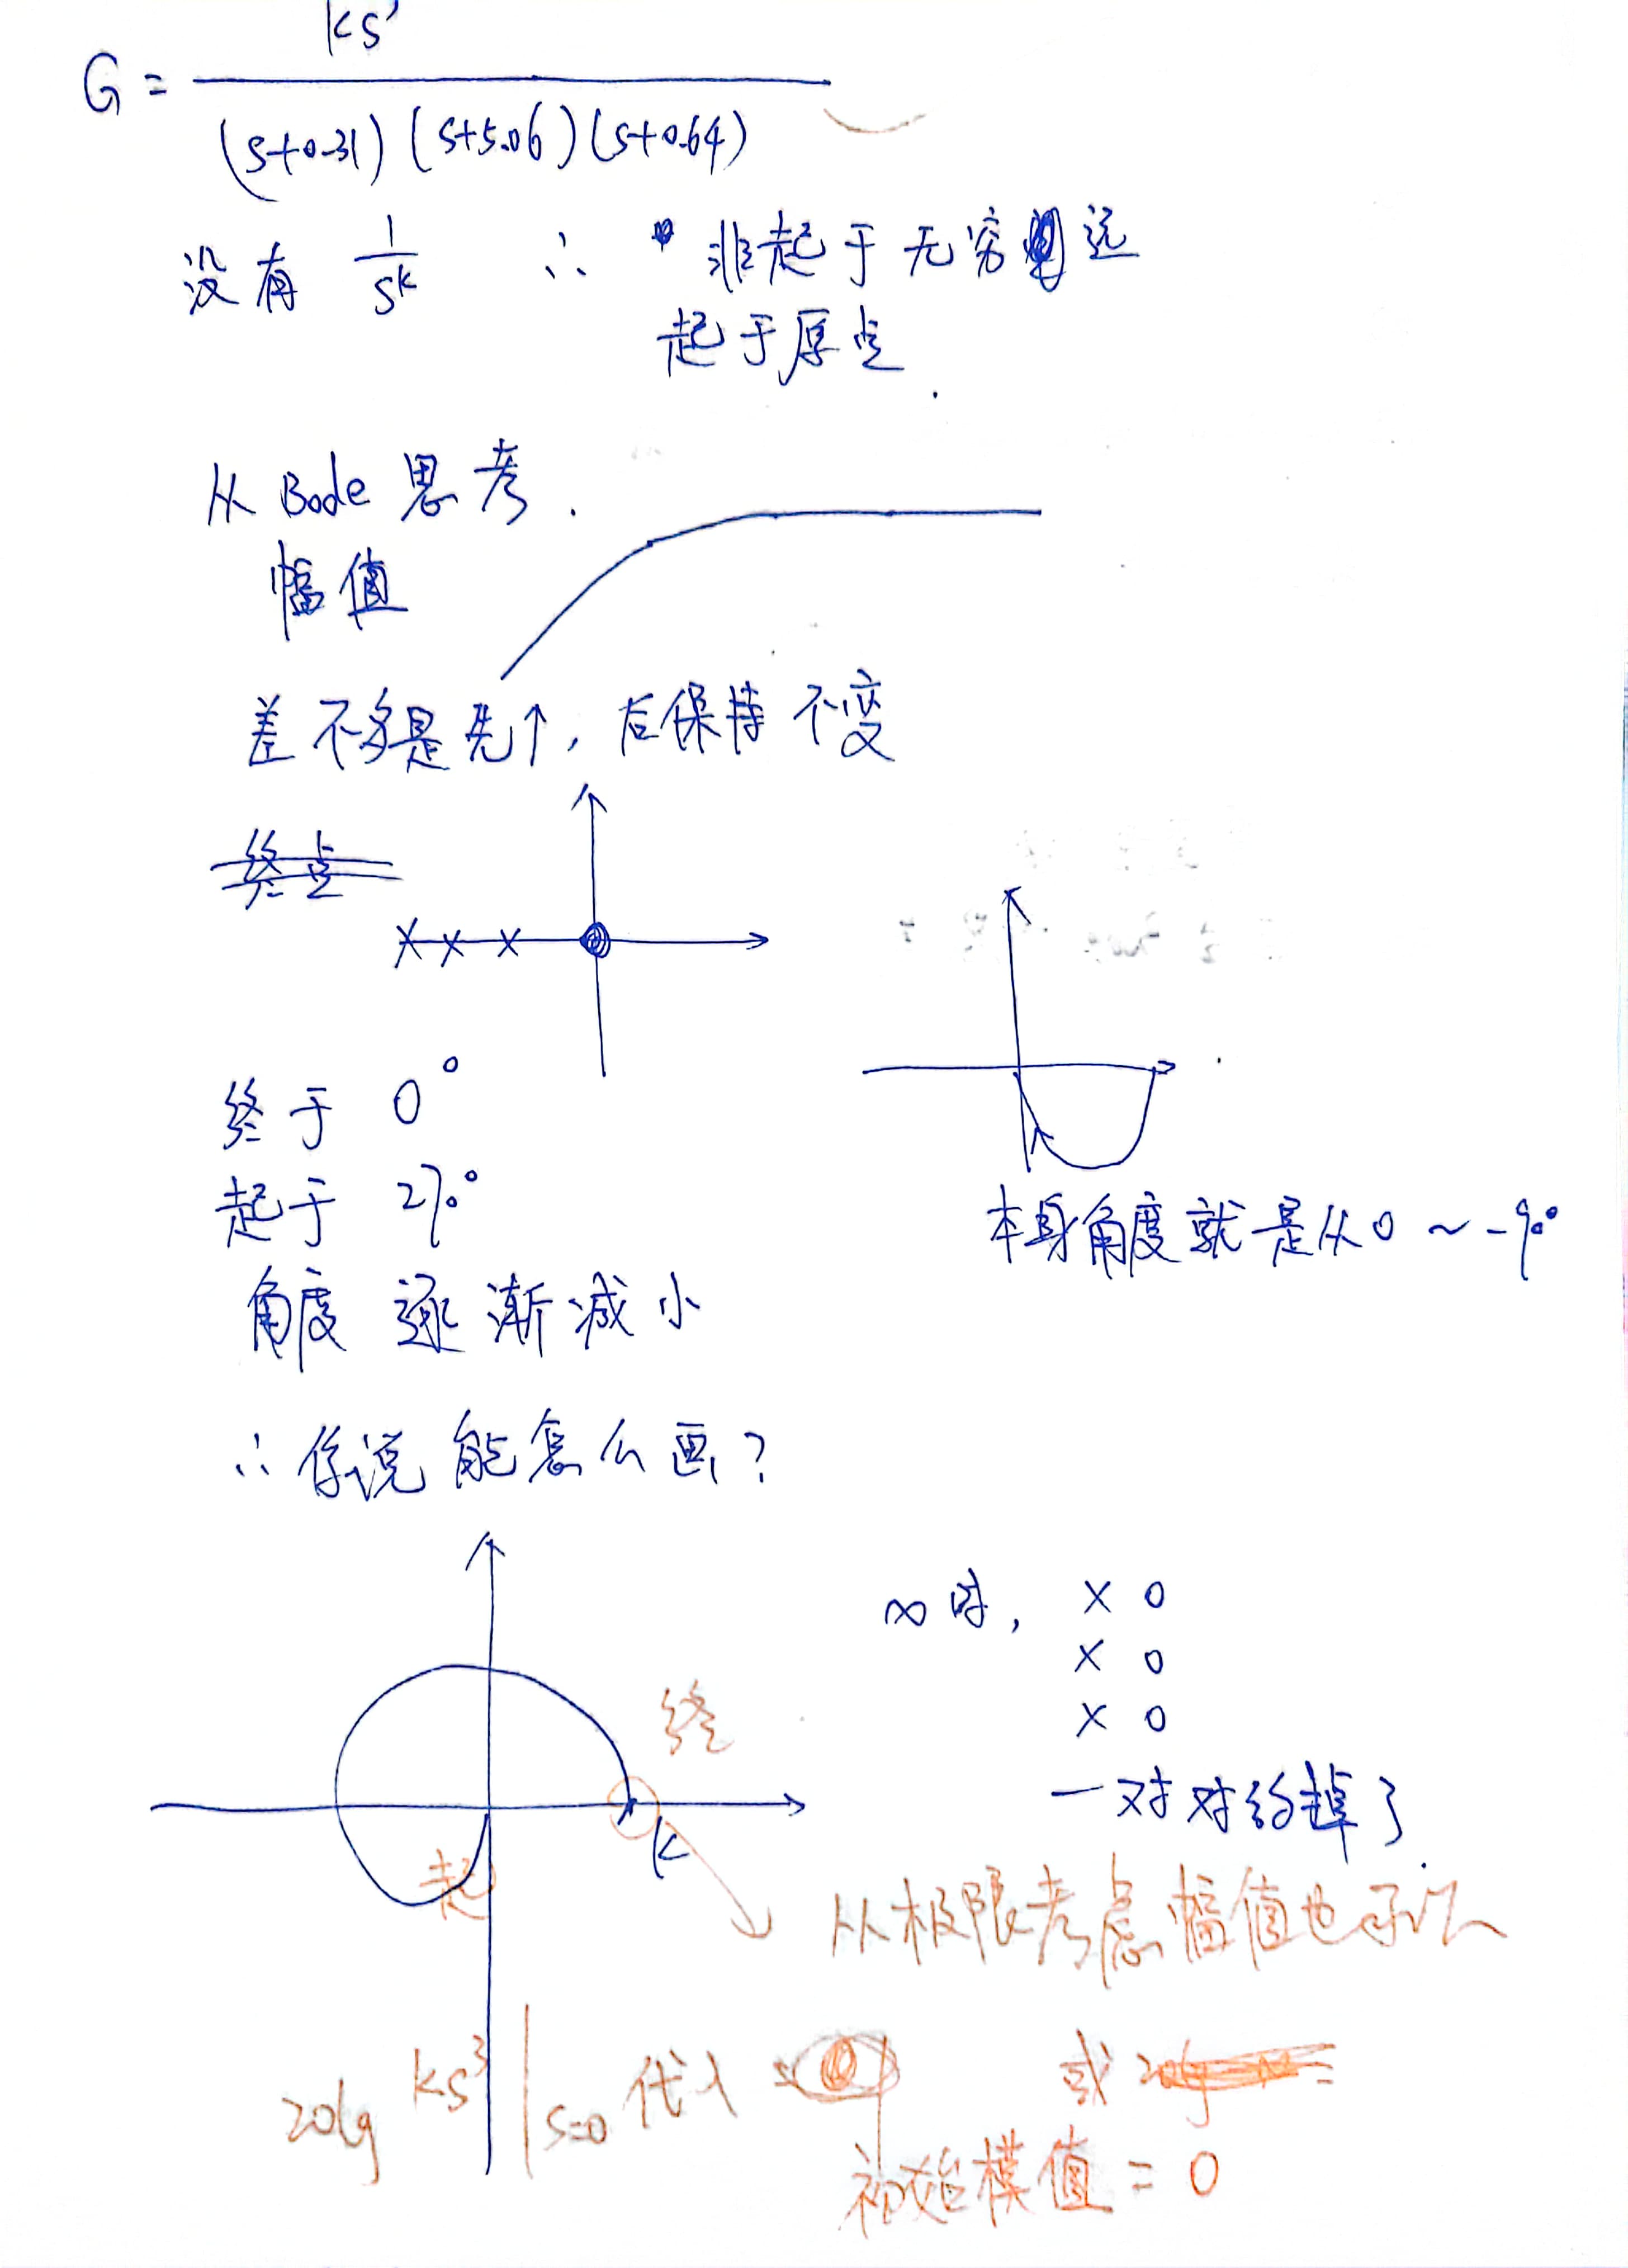 G = ks³ / (s+0.31)(s+5.06)(s+0.64)
没有 1/sᵏ ∴ 非起于无穷远
起于原点.
从Bode思考.
幅值
差不多是先↑, 后保持不变
终点
终于 0°
起于 270°
本身角度就是从0 ~ -90°
角度逐渐减小
∴ 你说能怎么画?
∞时, × 0
× 0
× 0
一对对约掉了.
终
k
起
从极限考虑幅值也可以
20lg ks³ | s=0 代入
或
初始模值 = 0